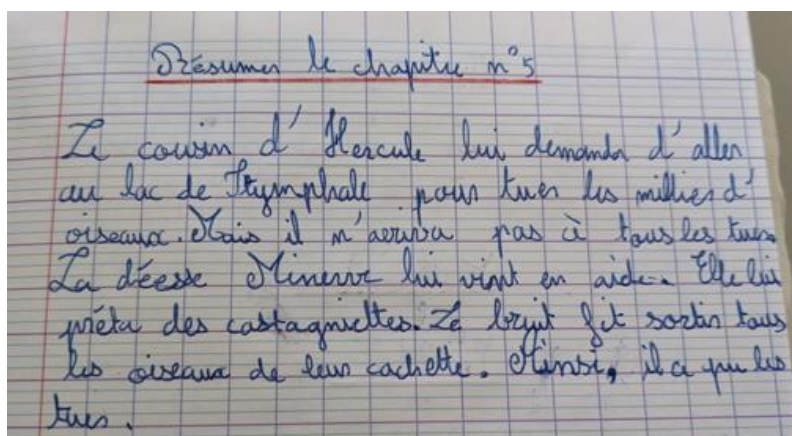 Résumer le chapitre n°5
Le cousin d' Hercule lui demanda d' aller
au lac de Stymphale pour tuer les milliers d'
oiseaux. Mais il n'arriva pas à tous les tuer.
La déesse Minerve lui vint en aide. Elle lui
prêta des castagnettes. Le bruit fit sortir tous
les oiseaux de leur cachette. Ainsi, il a pu les
tuer.